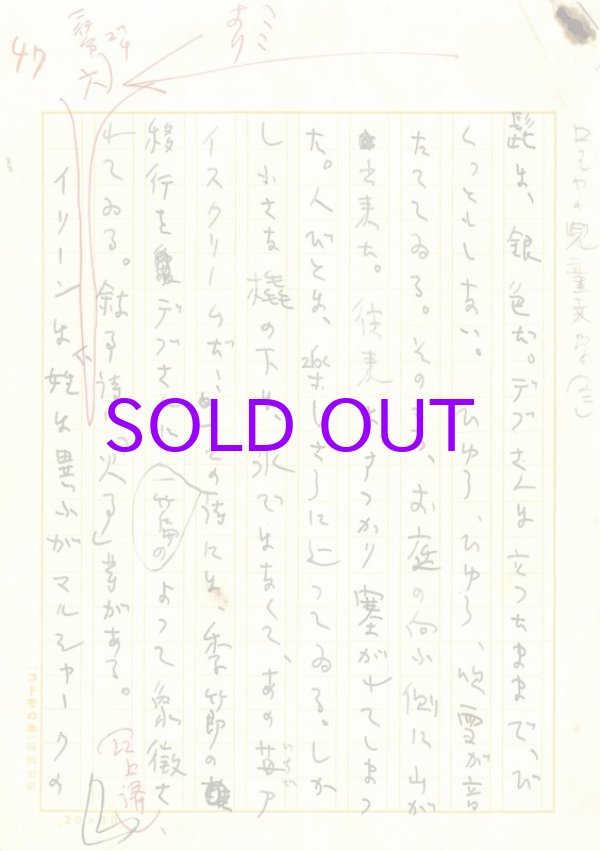 47
ロモヤの児童文学(二)
髭は、銀色だ。デブさんは立つたままで、び
くっともしない。ひゆう、ひゆう、吹雪が音
たててゐる。そのうち、お庭の向ふ側に山が
出来た。往来はすつかり塞がれてしまつ
た。人びとは、楽しさうに辷つてゐる。しか
し小さな橇の下は、氷ではなくて、あの苺ア
いちご
イスクリームだ、この詩には、季節の
移行をデブさんに一箇のよつて象徴さ
れてゐる。 詩に「火事」がある。
イリーンは、姓は異ふがマルシャークの
SOLD OUT
「コドモの本」原稿用紙
20×10